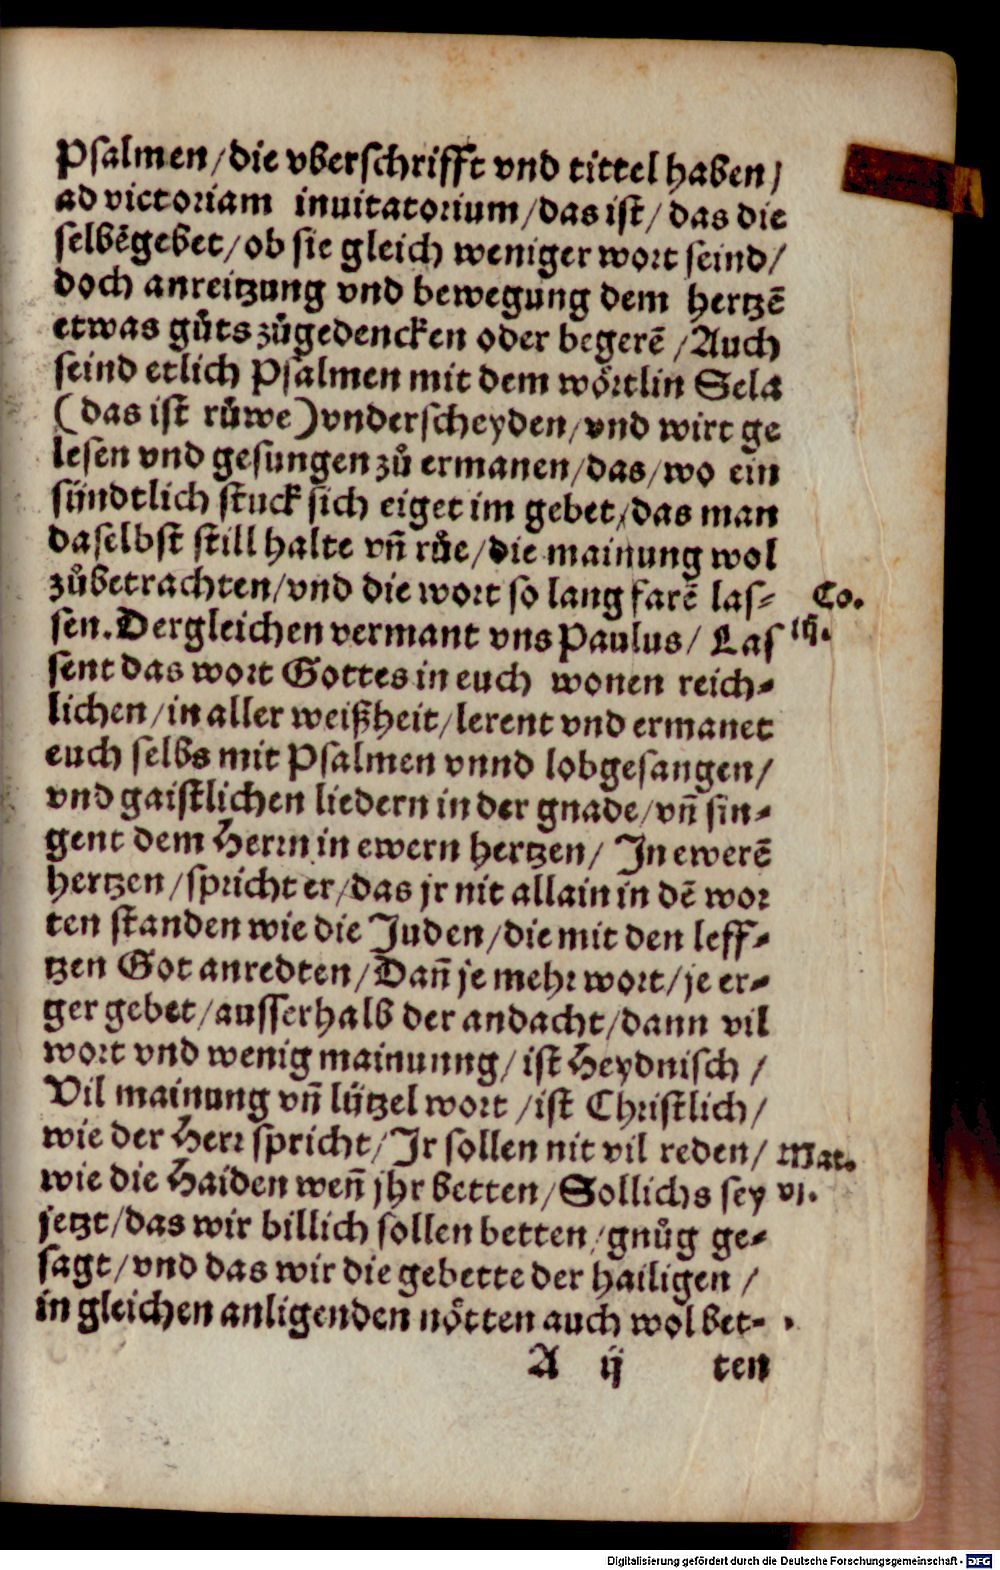 Psalmen/die vberschrifft vnd tittel haben/
ad victoriam inuitatorium/das ist/ das die
selbēgebet/ob sie gleich weniger wort seind/
doch anreitzung vnd bewegung dem hertzē
etwas gůts zůgedencken oder begerē /Auch
seind etlich Psalmen mit dem wörtlin Sela
(das ist růwe)vnderscheyden/vnd wirt ge
lesen vnd gesungen zů ermanen/das/wo ein
sündtlich stuck sich eiget im gebet/das man
daselbst still halte vñ růe/die mainung wol
zůbetrachten/vnd die wort so lang farē las-
Co.
sen.Dergleichen vermant vns Paulus/ Las
iij.
sent das wort Gottes in euch wonen reich-
lichen/in aller weißheit/lerent vnd ermanet
euch selbs mit Psalmen vnnd lobgesangen/
vnd gaistlichen liedern in der gnade/vñ sin-
gent dem Herrn in ewern hertzen/ In ewerē
hertzen/spricht er/das jr nit allain in dē wor
ten standen wie die Juden/die mit den leff-
tzen Got anredten/Dañ je mehr wort/je er-
ger gebet/ausserhalb der andacht/dann vil
wort vnd wenig mainunng/ist Heydnisch/
Vil mainung vñ lützel wort /ist Christlich/
wie der Herr spricht/Ir sollen nit vil reden/
Mat.
wie die Haiden weñ jhr betten/Sollichs sey
vj.
jetzt/das wir billich sollen betten/gnůg ge-
sagt/vnd das wir die gebette der hailigen /
in gleichen anligenden nötten auch wol bet-
A ij ten
Digitalisierung gefördert durch die Deutsche Forschungsgemeinschaft - DFG